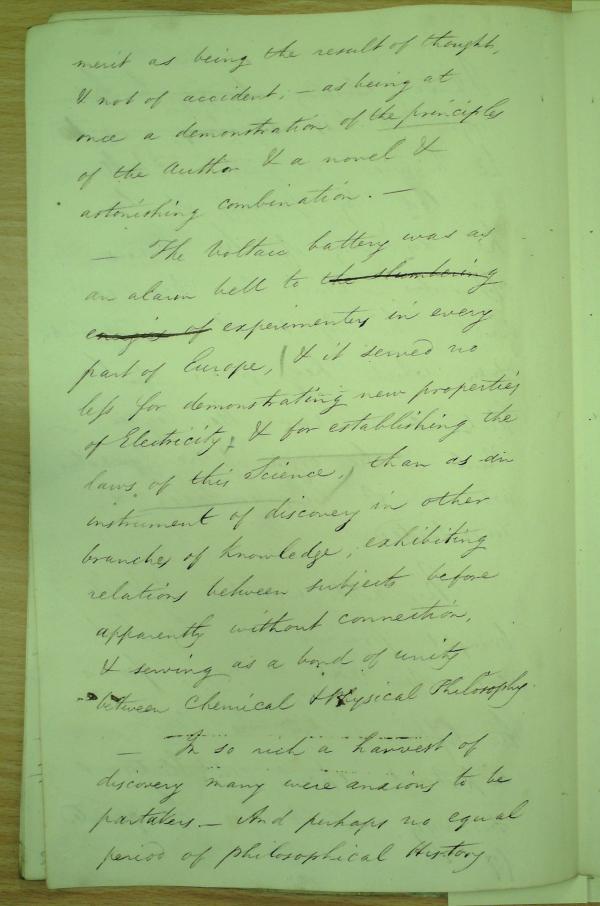 merit as being the result of thought,
& not of accident; – as being at
once a demonstration of the principles
of the author & a novel &
astonishing combination. –
– The Voltaic battery was as
an alarm bell to the slumbering
energies of experimenters in every
part of Europe, & it served no
less for demonstrating new properties
of Electricity, & for establishing the
laws of this Science, than as an
instrument of discovery in other
branches of Knowledge, exhibiting
relations between subjects before
apparently without connection,
& serving as a bond of unity
between Chemical & Physical Philosophy.
– In so rich a harvest of
discovery many were anxious to be
partakers – And perhaps no equal
period of philosophical History